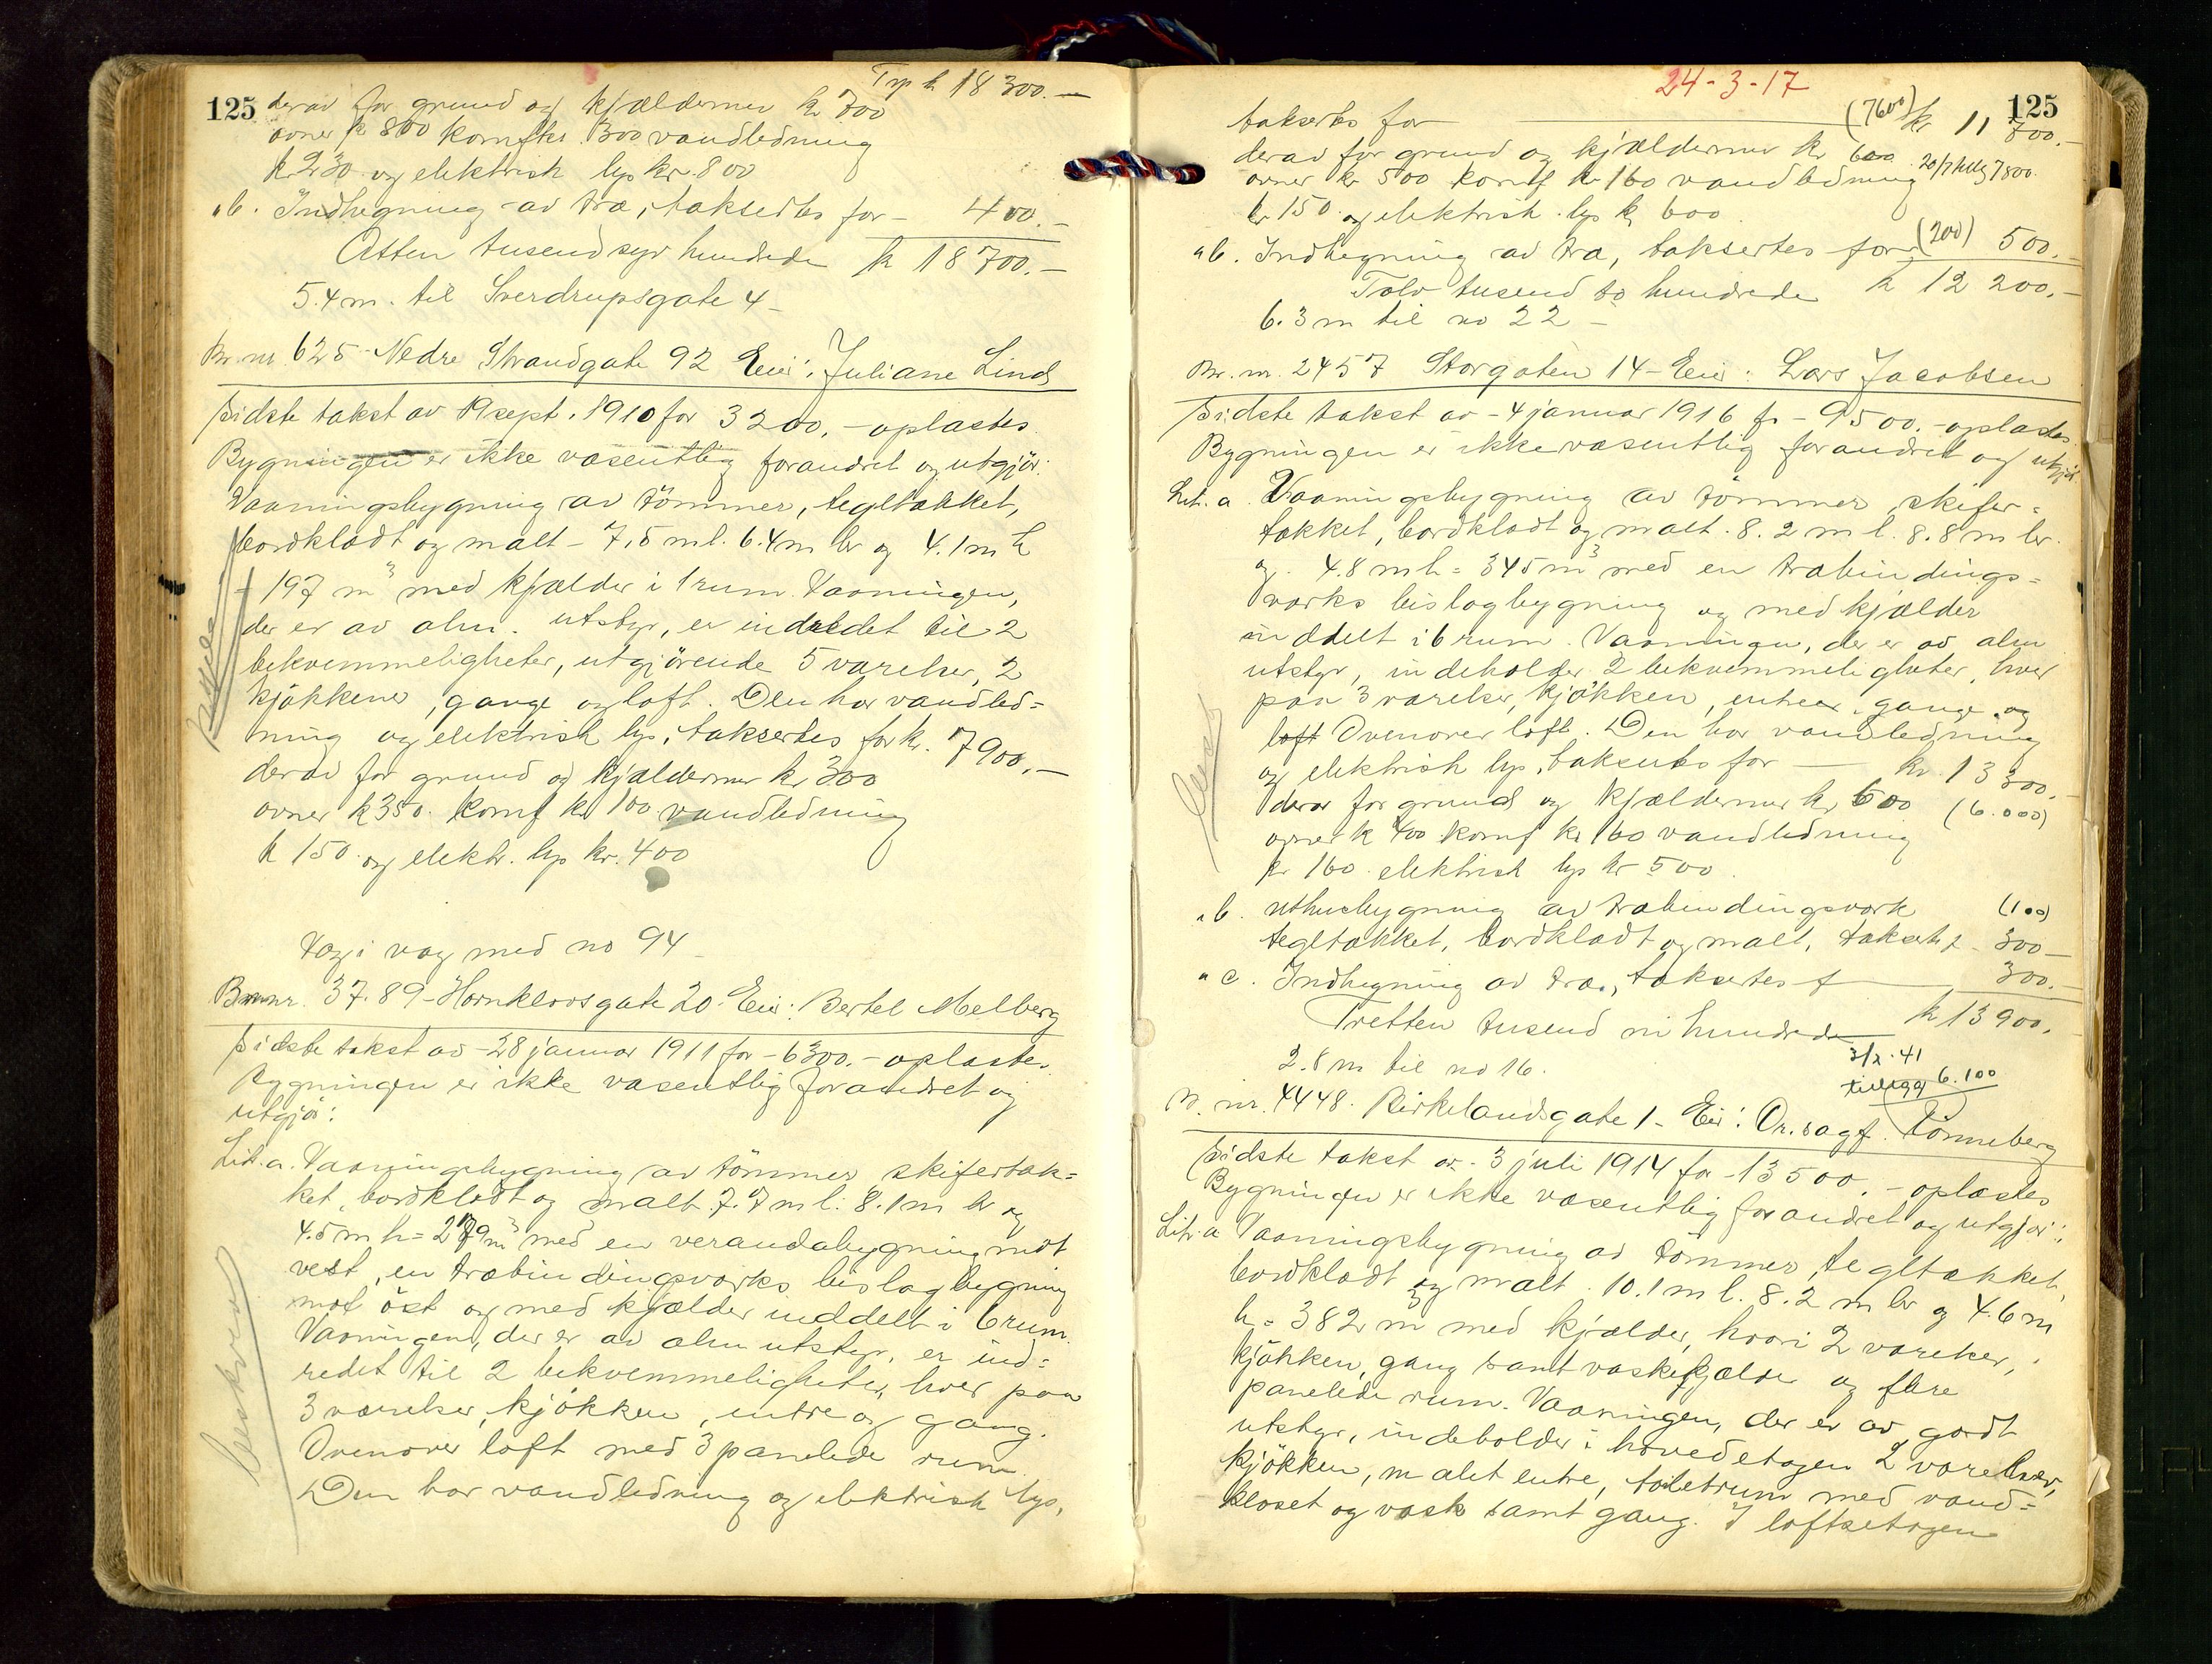 125
Trp k 18 300.—
derav for grund og kjældermur kr 700
ovner kr 800 komf kr. 300 vandledning
kr 230 og elektrisk lys kr. 800
" b. Indhegning av træ, taksertes for – 400.–
Atten tusend syv hundrede kr 18 700.–
5.4 m. til Sverdrupsgate 4 –
Br. nr. 625 Nedre Strandgate 92 Eier: Juliane Lind
Sidste takst av 19 sept. 1910 for 3200.– oplæstes.
Bygningen er ikke væsentlig forandret og utgjör:
Vaaningsbygning av tömmer, tegltækket,
bordklædt og malt – 7,5 m l. 6.4 m br og 4.1 m h
= 197 m³ med kjælder i 1 rum. Vaaningen,
der er av alm. utstyr, er indredet til 2
bekvemmeligheter, utgjörende 5 værelser, 2
kjökkener, gange og loft. Den har vandled=
ning og elektrisk lys, taksertes for kr. 7900.–
derav for grund og kjældermur kr 300
ovner kr 350. komf kr 100 vandledning
kr 150. og elektr. lys kr. 400
Væg i væg med no 94 –
Br. nr. 37.89 – Hornkloosgate 20. Eier: Bertel Melberg
Sidste takst av – 28 januar 1911 for – 6300.– oplæstes.
Bygningen er ikke væsentlig forandret og
utgjör:
Lit. a. Vaaningsbygning av tömmer, skifertæk=
ket, bordklædt og malt 7.7 m l. 8.1 m br og
4.5 m h = 279 m³ med en verandabygning mot
vest, en træbindingsværks bislagbygning
mot öst og med kjælder inddelt i 6 rum.
Vaaningen, der er av alm utstyr, er ind=
redet til 2 bekvemmeligheter, hver paa
3 værelser, kjökken, entre og gang.
Ovenover loft med 3 panelede rum.
Den har vandledning og elektrisk lys,
24-3-17
125
taksertes for (7600) kr 11 700.–
derav for grund og kjældermur kr 600 7800.
ovner kr 500 komf kr 160 vandledning
kr 150 og elektrisk lys kr 600.
" b. Indhegning av træ, taksertes for (200) 500.–
Tolv tusend to hundrede kr 12 200.–
6.3 m til no 22 –
Br. nr. 2457 Storgaten 14 – Eier: Lars Jacobsen
Sidste takst av – 4 januar 1916 fr – 9500.– oplæstes.
Bygningen er ikke væsentlig forandret og utgjör:
Lit. a. Vaaningsbygning av tömmer, skifer=
tækket, bordklædt og malt. 8.2 m l. 8.8 m br.
og 4.8 m h = 345 m³ med en træbindings=
værks bislagbygning og med kjælder
inddelt i 6 rum. Vaaningen, der er av alm
utstyr, indeholder 2 bekvemmeligheter, hver
paa 3 værelser, kjökken, entree, gang og
loft Ovenover loft. Den har vandledning
og elektrisk lys, taksertes for — kr. 13 300.–
derav for grund og kjældermur kr 600 (6.000)
ovner kr 400 komf kr 160 vandledning
kr 160 elektrisk lys kr 500.
" b. Uthusbygning av træbindingsverk (100)
tegltækket, bordklædt og malt, taksertes f – 300 –
" c. Indhegning av træ, taksertes f — 300.–
Tretten tusend ni hundrede kr 13 900.
2.8 m til no 16.
3/2.41
tillegg 6.100
Br. nr. 4448. Kirkelandsgate 1 – Eier: Or. sagf. Rönneberg
Sidste takst av – 3 juli 1914 for – 13 500.– oplæstes
Bygningen er ikke væsentlig forandret og utgjör:
Lit. a Vaaningsbygning av tömmer, tegltækket,
bordklædt og malt. 10.1 m l. 8.2 m br og 4.6 m
h = 382 m³ med kjælder, hvori 2 værelser,
kjökken, gang samt vaskekjælder og flere
panelede rum. Vaaningen, der er av godt
utstyr, indeholder i hovedetagen 2 værelser,
kjökken, malet entre, toiletrum med vand=
kloset og vask samt gang. I loftsetagen